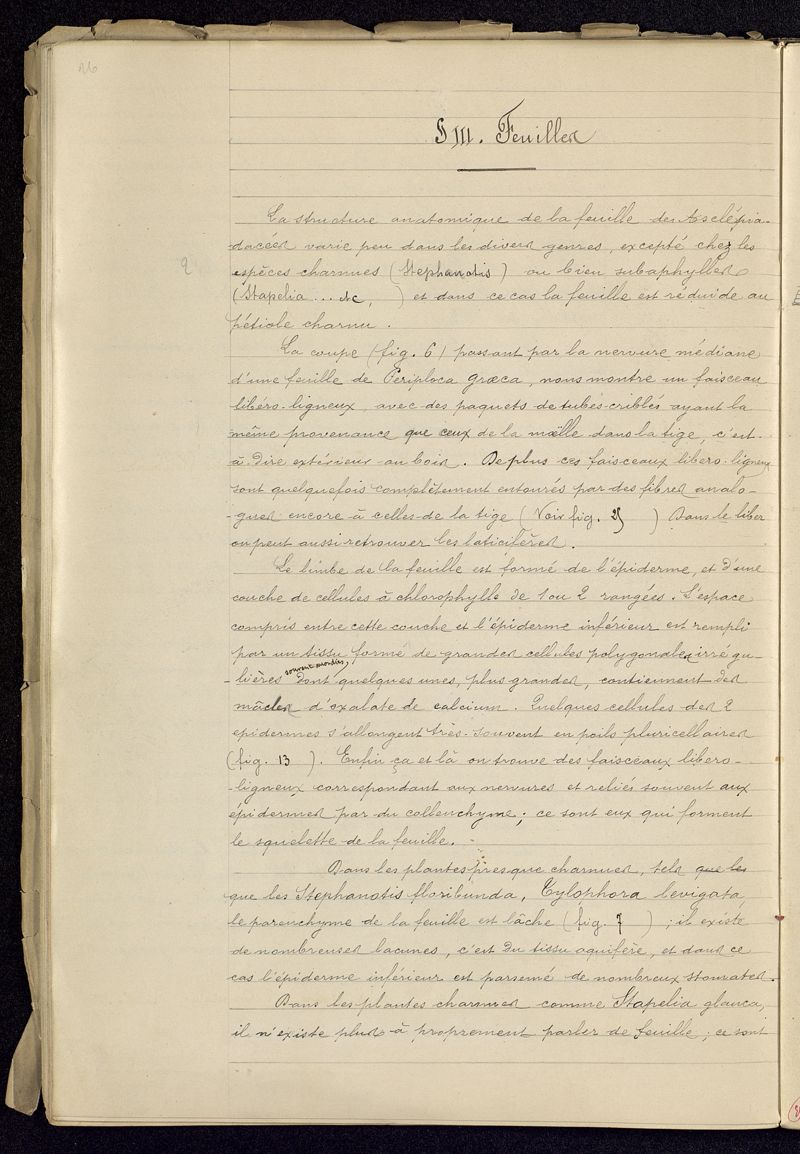 26
§ III. Feuilles
La structure anatomique de la feuille des Asclépia-
dacées varie peu dans les divers genres, excepté chez les
espèces charnues (Stephanotis) ou bien subaphylles
(Stapelia ... etc, ) et dans ce cas la feuille est réduide au
pétiole charnu.
La coupe (fig. 6) passant par la nervure médiane
d'une feuille de Periploca Græca, nous montre un faisceau
libéro-ligneux avec des paquets de tubes criblés ayant la
même provenance que ceux de la mœlle dans la tige, c'est-
à-dire extérieur au bois. De plus ces faisceaux libero-ligneux
sont quelquefois complètement entourés par des fibres analo-
-gues encore à celles de la tige (Voir fig. 25 ) Dans le liber
on peut aussi retrouver les laticifères.
Le limbe de la feuille est formé de l'épiderme, et d'une
couche de cellules à chlorophylle de 1 ou 2 rangées. L'espace
compris entre cette couche et l'épiderme inférieur est rempli
par un tissu formé de grandes cellules polygonales irrégu-
-lières souvent arrondies, dont quelques unes, plus grandes, contiennent des
mâcles d'oxalate de calcium. Quelques cellules des 2
epidermes s'allongent très-souvent en poils pluricellaires
(fig. 13 ). Enfin ça et là on trouve des faisceaux libero-
-ligneux correspondant aux nervures et reliés souvent aux
épidermes par du collenchyme; ce sont eux qui forment
le squelette de la feuille.
Dans les plantes presque charnues, tels que les
que les Stephanotis floribunda, Tylophora levigata,
le parenchyme de la feuille est lâche (fig. 7 ) ; il existe
de nombreuses lacunes, c'est du tissu aquifère, et dans ce
cas l'épiderme inférieur est parsemé de nombreux stomates.
Dans les plantes charnues comme Stapelia glauca,
il n'existe plus à proprement parler de feuille; ce sont